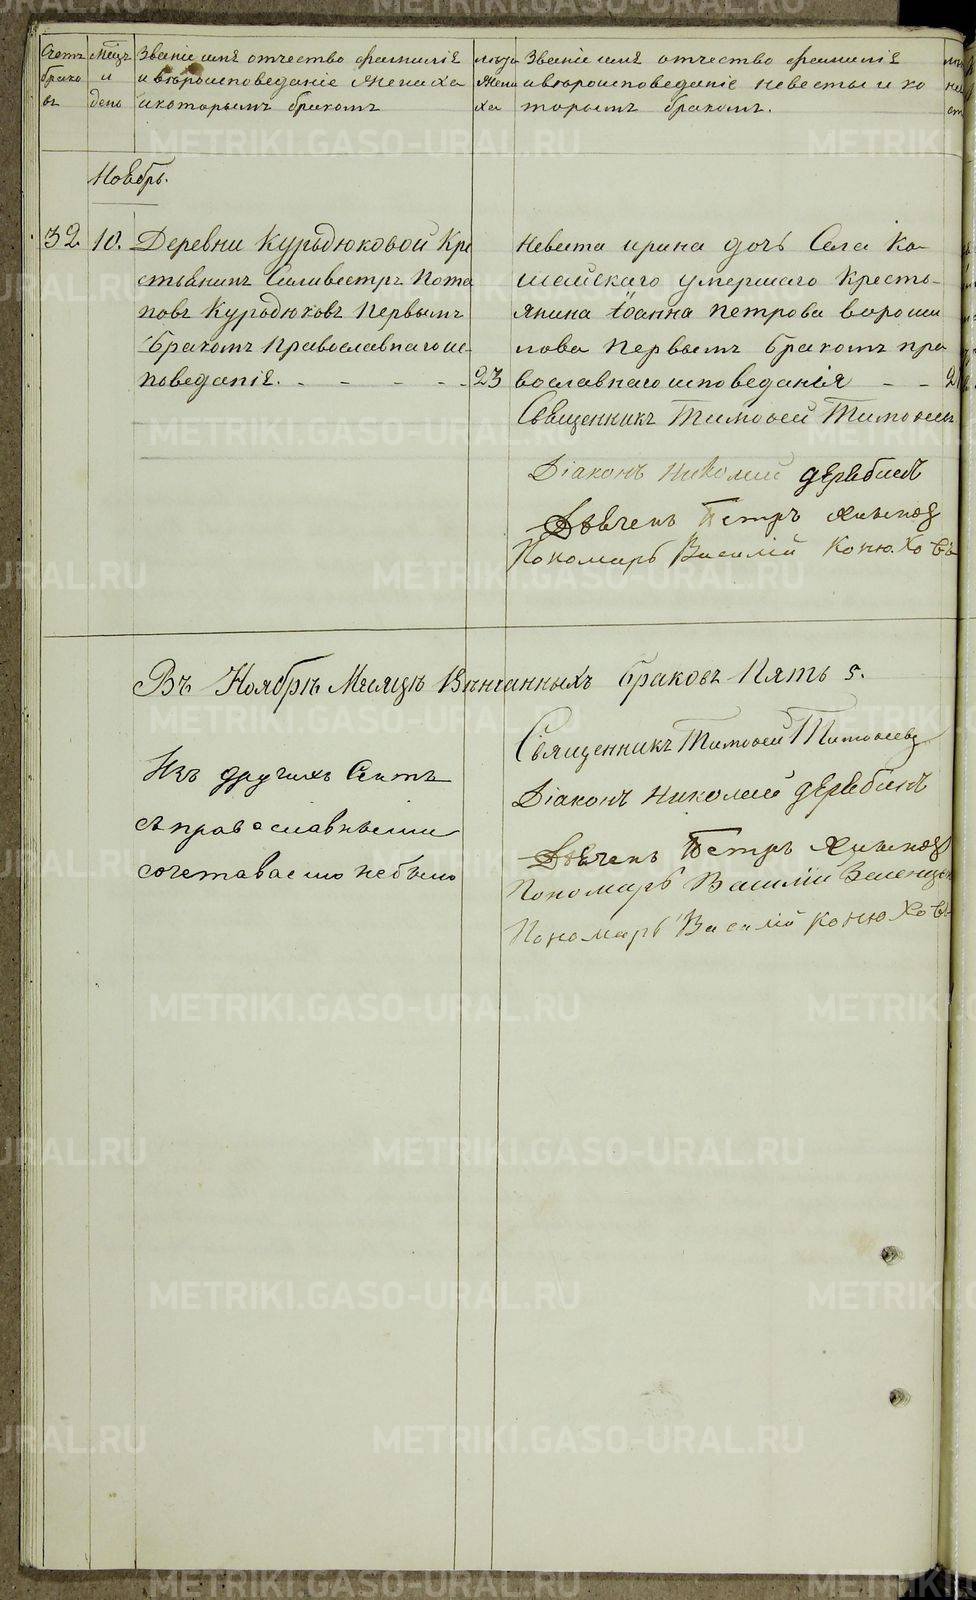 Счетъ
брако
въ
Мѣцъ
и
день
Званіе имѣ отчество фамиліѣ
и вѣроисповеданіе жениха
и которымъ бракомъ
лѣта
жени
ха
Званіе имѣ отчество фамиліѣ
и вѣроисповеданіе невесты и ко
торымъ бракомъ.
Ноябрь.
32
10.
Деревни Курьдюковой Кре
стьянинъ Сильвестръ Пота
повъ Курьдюковъ первымъ
бракомъ православнаго ис-
поведаніѣ. - - - - -
23
невеста ирина дочь Села Ко-
шайскаго умершаго Кресть-
янина Іоанна Петрова вороши
лова первымъ бракомъ пра
вославнаго исповеданія - -
2
Священникъ Тимофей Тимофеев
Діаконъ Николай Дерябинъ
Дьячекъ Петръ
Пономарь Василій Конюховъ
Въ Ноябрѣ Месяцѣ Венчанныхъ браковъ Пять 5.
Священникъ Тимофей Тимофеевъ
Изъ другихъ Сектъ
съ православными
сочетаваемо не было
Діаконъ Николай Дерябинъ
Дьячекъ Петръ
Пономарь Василій
Пономарь Василій Конюховъ
METRIKI.GASO-URAL.RU